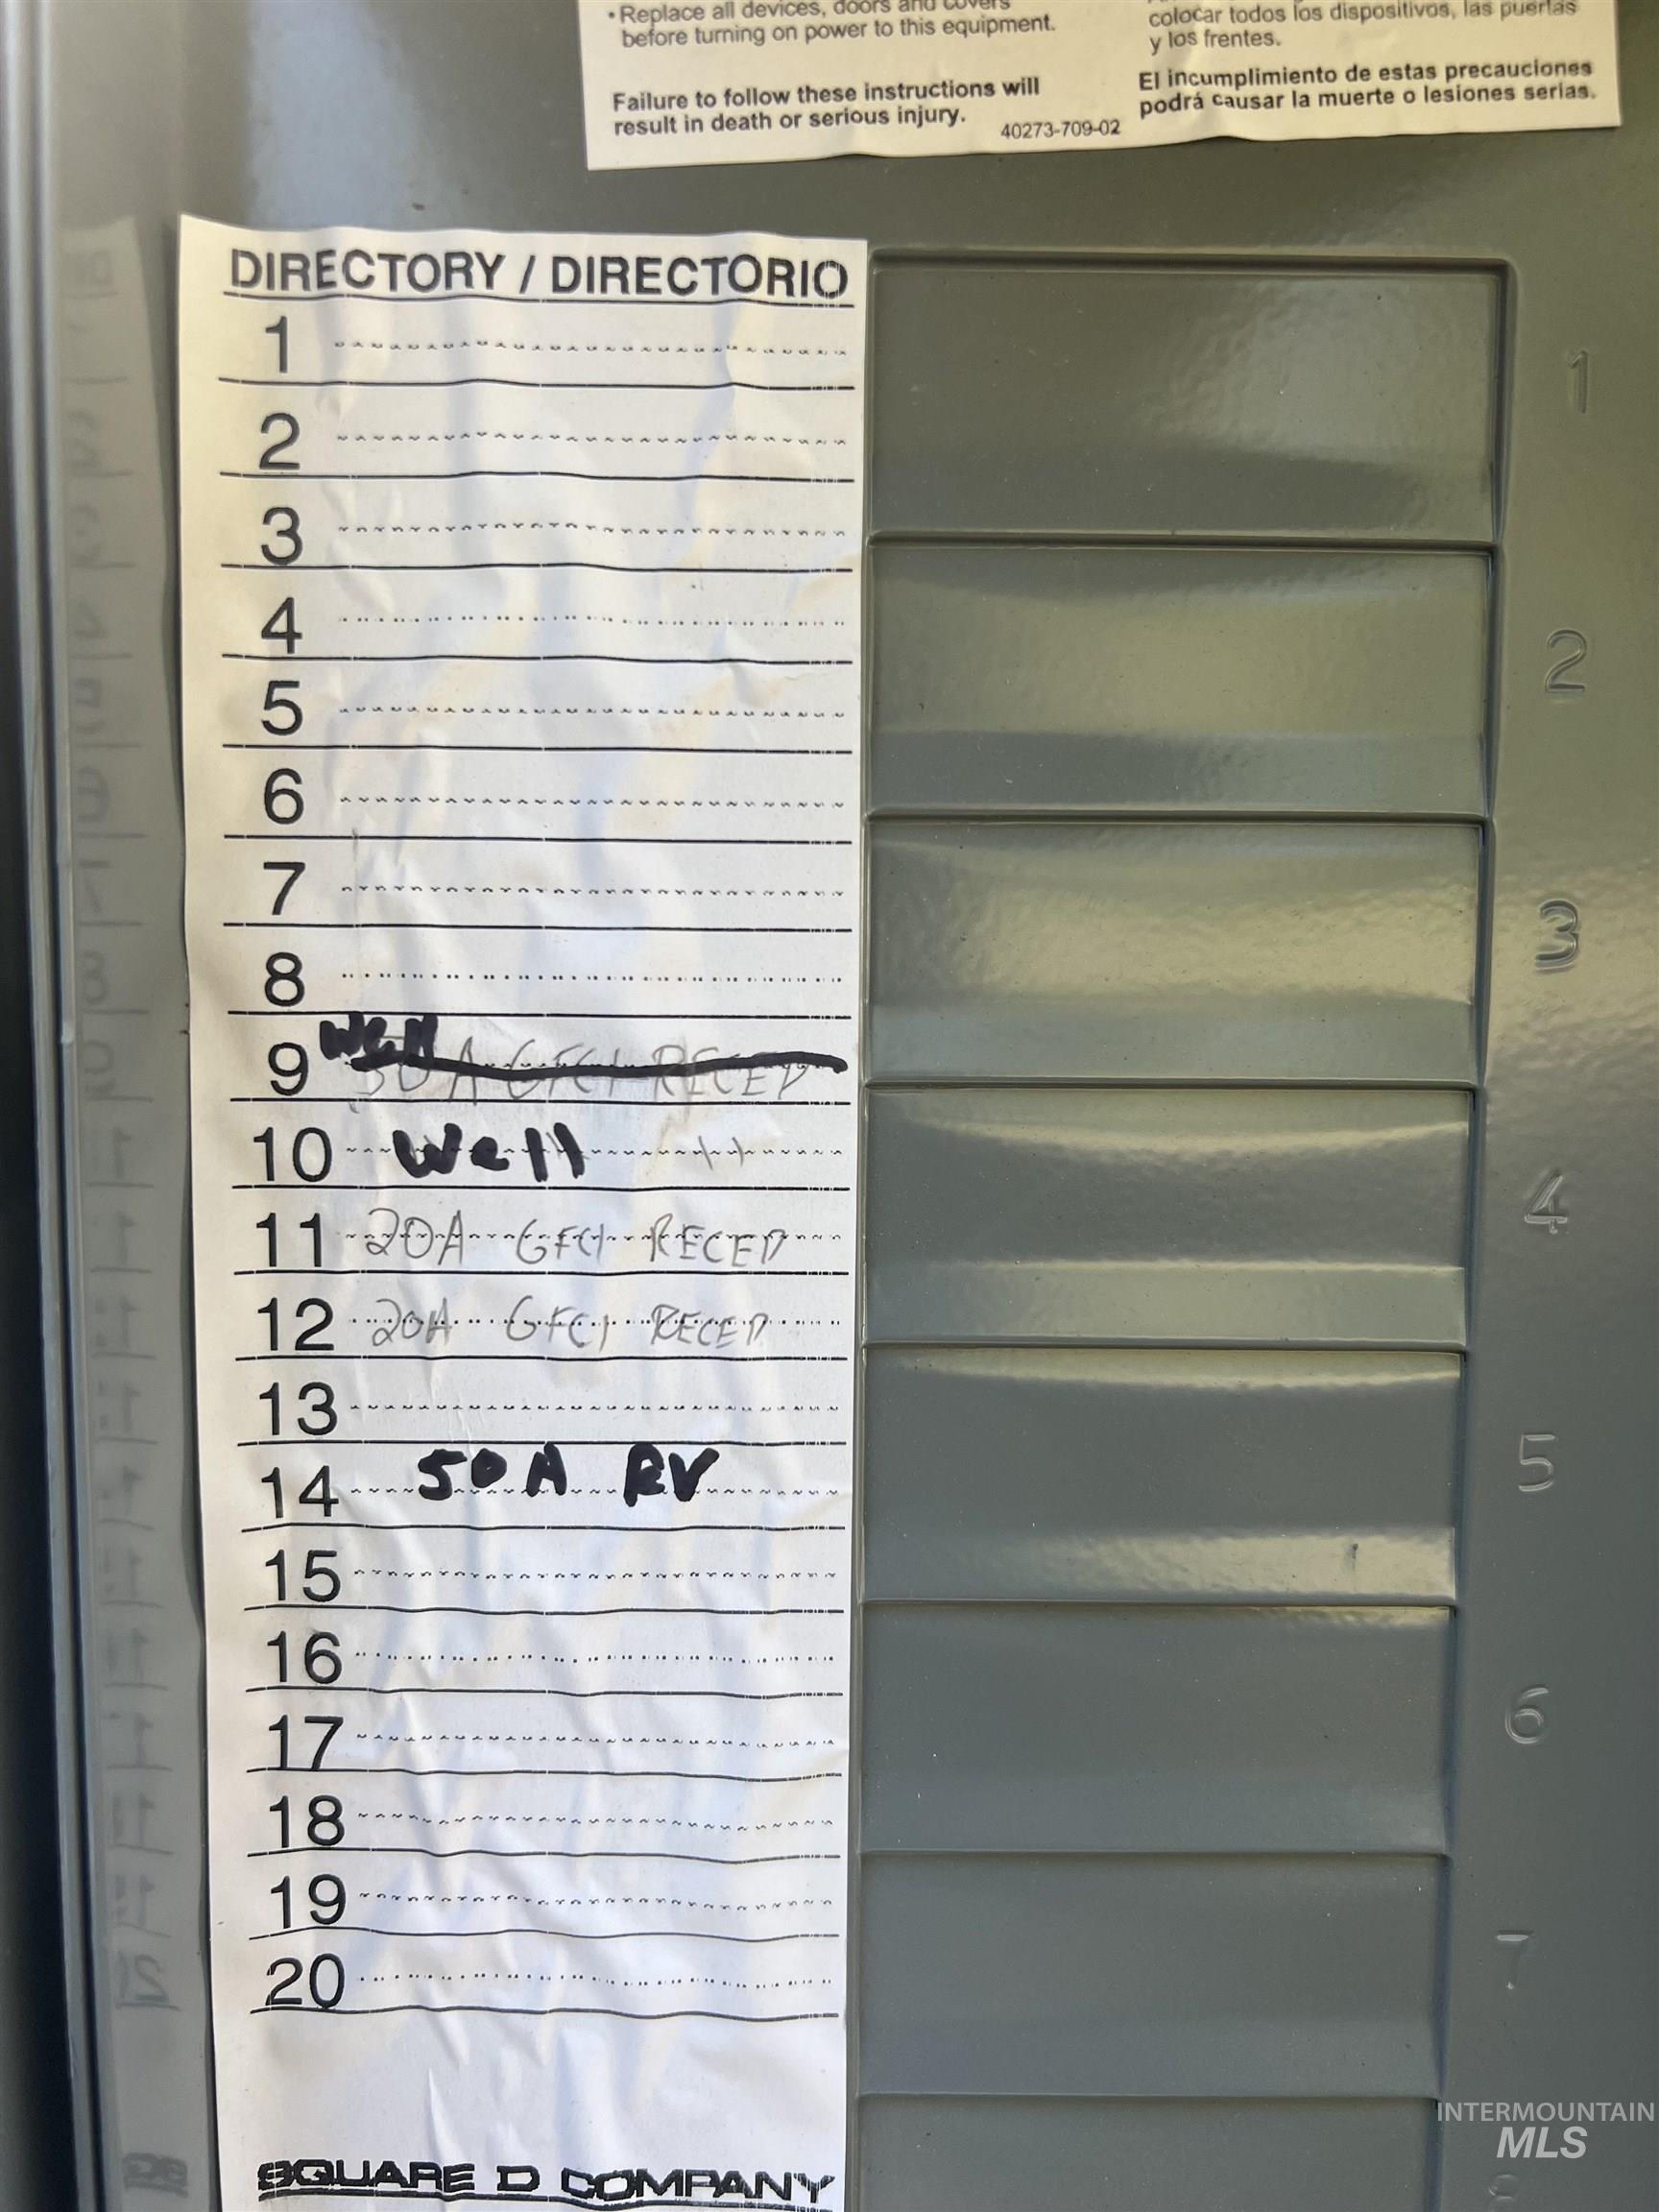 • Replace all devices, doors and covers
before turning on power to this equipment.
Failure to follow these instructions will
result in death or serious injury.
40273-709-02
colocar todos los dispositivos, las puertas
y los frentes.
El incumplimiento de estas precauciones
podrá causar la muerte o lesiones serias.
DIRECTORY / DIRECTORIO
1
2
3
4
5
6
7
8
9 Well 50A GFCI RECEP
10 Well
11 20A GFCI RECEP
12 20A GFCI RECEP
13
14 50A RV
15
16
17
18
19
20
SQUARE D COMPANY
1
2
3
4
5
6
7
8
INTERMOUNTAIN
MLS